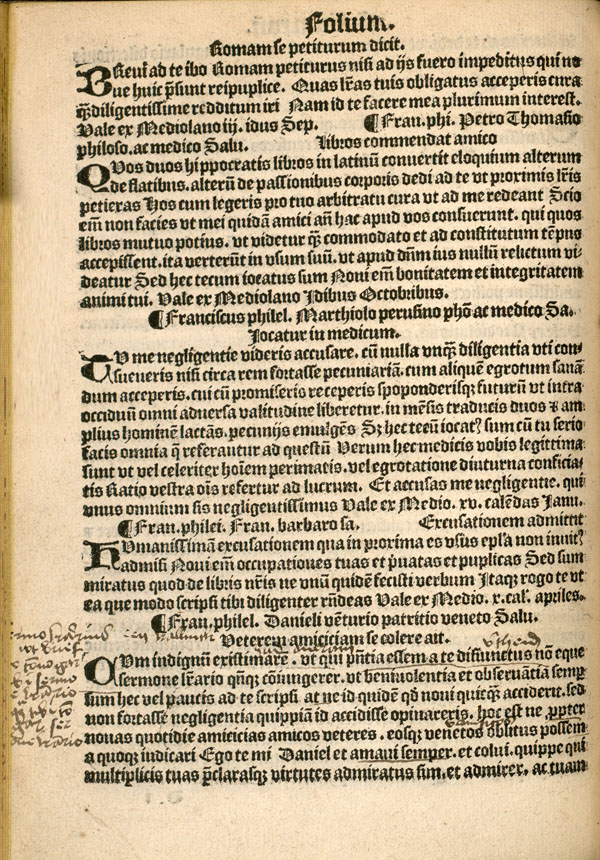 Folium.
Romam se petiturum dicit.
BReui ad te ibo Romam petiturus nisi ad ijs fuero impeditus qui no
ue huic p̃sunt reipuplice. Quas lr̃as tuis obligatus acceperis cura
q̃ꝫ diligentissime redditum iri Nam id te facere mea plurimum interest.
Vale ex Mediolano iij. idus Sep. ¶ Fran. phi. Petro Thomasio
philoso. ac medico Salu. Libros commendat amico
QVos duos hippocratis libros in latinũ conuertit eloquium alterum
de flatibus. alterũ de passionibus corporis dedi ad te vt proximis lr̃is
petieras Hos cum legeris pro tuo arbitratu cura vt ad me redeant Scio
eĩm non facies vt mei quidã amici añ hac apud vos consuerunt. qui quos
libros mutuo potius. vt videtur q̃ꝫ commodato et ad constitutum tẽpus
accepissent. ita verterũt in vsum suũ. vt apud dñm ius nullũ relictum vi-
deatur Sed hec tecum iocatus sum Noui eĩm bonitatem et integritatem
animi tui. Vale ex Mediolano Idibus Octobribus.
¶ Franciscus philel. Marthiolo perusino phõ ac medico Sa.
Jocatur in medicum.
TV me negligentie videris accusare. cũ nulla vnq̃ꝫ diligentia vti con-
sueueris nisi circa rem fortasse pecuniariã. cum aliquẽ egrotum sanã
dum acceperis. cui cũ promiseris receperis spoponderisqꝫ futurũ vt intra
occiduũ omni aduersa valitudine liberetur. in mẽsis traducis duos ⁊ am
plius hominẽ lactãs. pecunijs emulgẽs Sꝫ hec tecũ iocat᷒ sum cũ tu serio
facis omnia q̃ referantur ad questũ Verum hec medicis vobis legittima
sunt vt vel celeriter hoĩem perimatis. vel egrotatione diuturna conficia-
tis Ratio vestra oĩs refertur ad lucrum. Et accusas me negligentie. qui
vnus omnium sis negligentissimus Vale ex Medio. xv. calẽdas Janu.
¶ Fran. philel. Fran. barbaro sa. Excusationem admittit
HVmanissimã excusationem qua in proxima es vsus epl̃a non inuit᷒
admisi Noui eĩm occupationes tuas et p̃uatas et puplicas Sed sum
miratus quod de libris nr̃is ne vnũ quidẽ fecisti verbum Itaqꝫ rogo te vt
ea que modo scripsi tibi diligenter rñdeas Vale ex Medio. x. cal. apriles.
¶ Fran. philel. Danieli vẽturio patritio veneto Salu.
Veterem amiciciam se colere ait.
CVm indignũ existimarẽ. vt qui pñtia essem a te disiunctus nõ eque
sermone lr̃ario q̃uqꝫ cõiungerer. vt beniuolentia et obseruãtia semp
sum hec vel paucis ad te scripsi. at ne id quidẽ qd noui quicq̃ꝫ acciderit. sed
non fortasse negligentia quippiã id accidisse opinareris. hoc est ne ꝓpter
nouas quotidie amicicias amicos veteres. eosqꝫ venetos oblitus possem
a quoqꝫ iudicari Ego te mi Daniel et amaui semper. et colui. quippe qui
multiplicis tuas p̃clarasqꝫ virtutes admiratus sim. et admirer. ac tuam